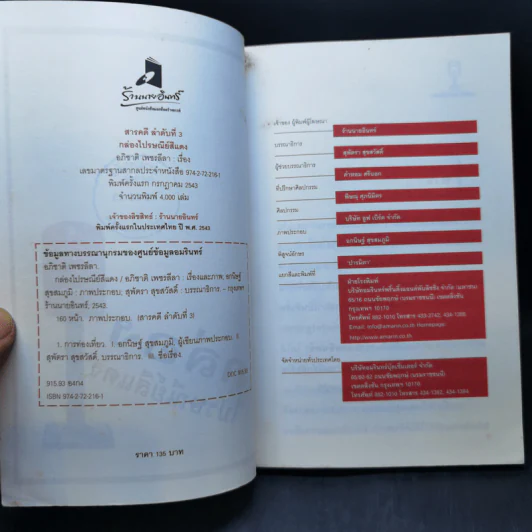 ร้านนายอินทร์
สารคดี ลำดับที่ 3
กล่องไปรษณีย์สีแดง
อภิชาติ เพชรลีลา : เรื่อง
เลขมาตรฐานสากลประจำหนังสือ 974-272-216-1
พิมพ์ครั้งแรก กรกฎาคม 2543
จำนวนพิมพ์ 4,000 เล่ม
เจ้าของลิขสิทธิ์ : ร้านนายอินทร์
พิมพ์ครั้งแรกในประเทศไทย ปี พ.ศ. 2543
ข้อมูลทางบรรณานุกรมของศูนย์ข้อมูลอมรินทร์
อภิชาติ เพชรลีลา.
กล่องไปรษณีย์สีแดง / อภิชาติ เพชรลีลา : เรื่องและภาพ; อกนิษฐ์
สุขสมภูมิ : ภาพประกอบ; สุพัตรา สุขสวัสดิ์ : บรรณาธิการ.- กรุงเทพฯ
ร้านนายอินทร์, 2543.
160 หน้า. ภาพประกอบ. (สารคดี ลำดับที่ 3)
1. การท่องเที่ยว. I. อกนิษฐ์ สุขสมภูมิ, ผู้เขียนภาพประกอบ. II
สุพัตรา สุขสวัสดิ์, บรรณาธิการ. III. ชื่อเรื่อง.
DDC 915.93
915.93 อ414ก
ISBN 974-272-216-1
ราคา 135 บาท
เจ้าของ ผู้พิมพ์ผู้โฆษณา
ร้านนายอินทร์
บรรณาธิการ
สุพัตรา สุขสวัสดิ์
ผู้ช่วยบรรณาธิการ
คำหอม ศรีนอก
ที่ปรึกษาศิลปกรรม
พิษณุ ศุภนิมิตร
ศิลปกรรม
บริษัท รูฟ เบิร์ด จำกัด
ภาพประกอบ
อกนิษฐ์ สุขสมภูมิ
พิสูจน์อักษร
ปารมิตา
แยกสีและพิมพ์ที่
ฝ่ายโรงพิมพ์
บริษัทอมรินทร์พริ้นติ้งแอนด์พับลิชชิ่ง จำกัด (มหาชน)
65/16 ถนนชัยพฤกษ์ (บรมราชชนนี) เขตตลิ่งชัน
กรุงเทพฯ 10170
โทรศัพท์ 882-1010 โทรสาร 433-2742, 434-1385
E-mail: info@amarin.co.th Homepage:
http://www.amarin.co.th
จัดจำหน่ายทั่วประเทศโดย
บริษัทอมรินทร์บุ๊คเซ็นเตอร์ จำกัด
65/60-62 ถนนชัยพฤกษ์ (บรมราชชนนี)
เขตตลิ่งชัน กรุงเทพฯ 10170